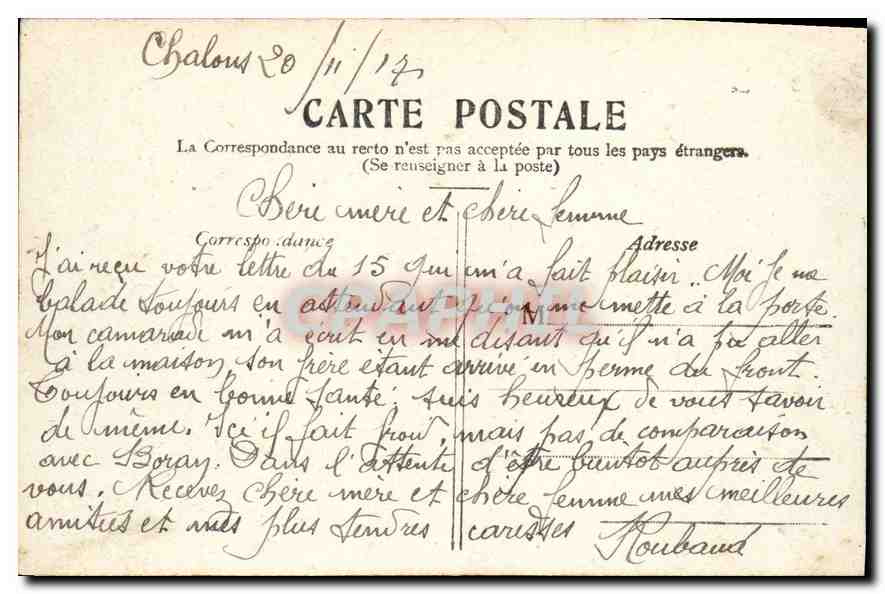 Chalons 20/11/17
CARTE POSTALE
La Correspondance au recto n'est pas acceptée par tous les pays étrangers.
(Se renseigner à la poste)
Chère mère et chère femme
Correspondance
Adresse
J'ai reçu votre lettre du 15 qui m'a fait plaisir. Moi je me
balade toujours en attendant qu'on me mette à la porte.
M
Mon camarade m'a écrit en me disant qu'il n'a pu aller
à la maison son frère étant arrivé en perme du front.
Toujours en bonne santé : suis heureux de vous savoir
de même. Ici il fait froid, mais pas de comparaison
avec Boray. Dans l'attente d'être bientot auprès de
vous. Recevez chère mère et chère femme mes meilleures
amitiés et mes plus tendres caresses
Roubaud